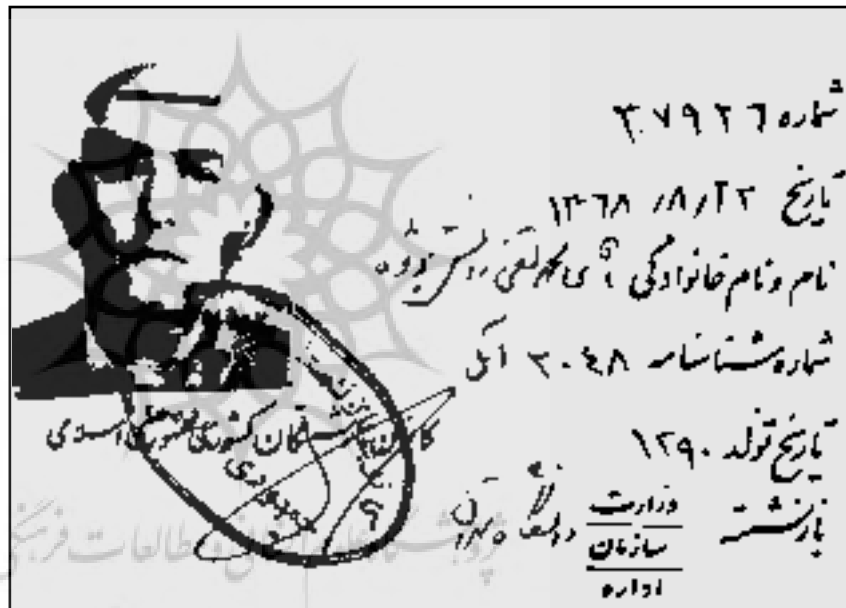 شماره ۳۷۹۲۶
تاریخ ۱۳۶۸/۸/۲۲
نام و نام خانوادگی آقای محمد تقی دانش پژوه
شماره شناسنامه ۲۰۴۸ آمل
تاریخ تولد ۱۲۹۰
بازنشسته وزارت دانشگاه تهران
سازمان
اداره
کانون بازنشستگان کشوری جمهوری اسلامی
پژوهشگاه علوم انسانی و مطالعات فرهنگی